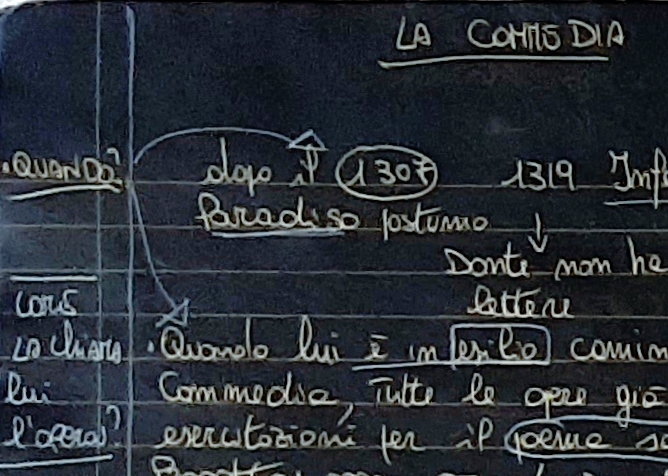 LA COMMEDIA
• QUANDO? dopo il 1307 1319 Inf
Paradiso postumo
Dante non ha
lettere
come
LA CHIAMA • Quando lui è in esilio comin
lui Commedia, Tutte le opere già
l'opera? esercitazioni per il poema s